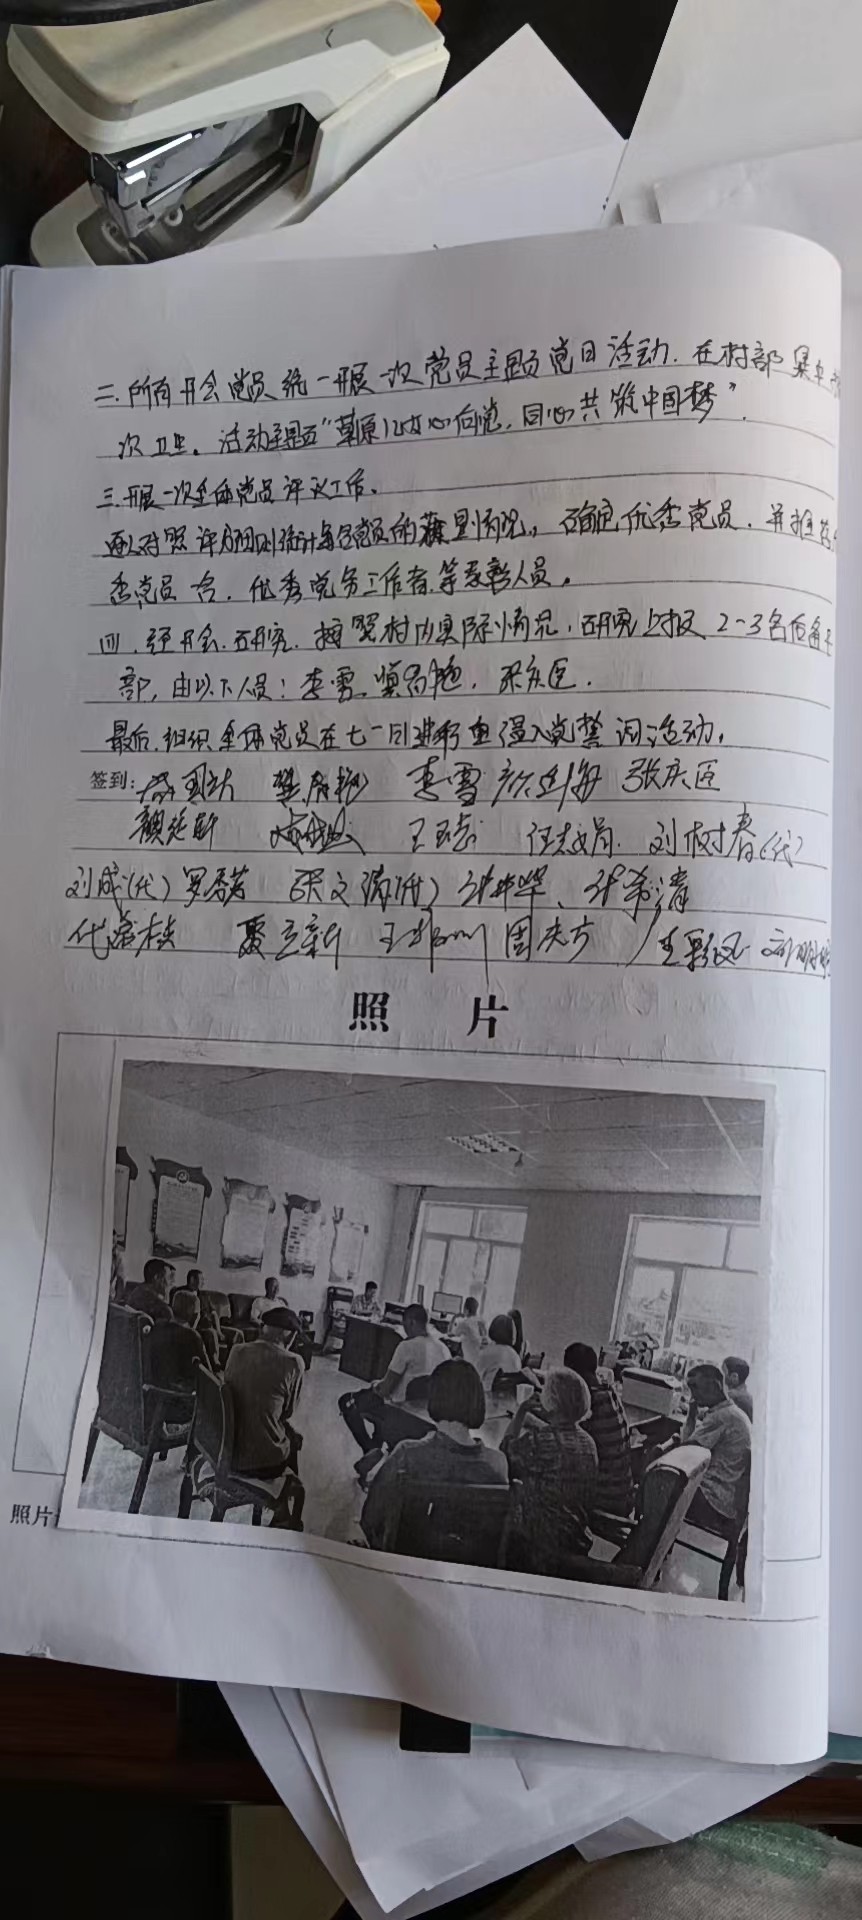 二.所有开会党员统一开展一次党员主题党日活动.在村部集中
次卫生。活动主题"草原儿女心向党,同心共筑中国梦".
三.开展一次全体党员评议工作。
对照评分细则统计每名党员的情况,确定优秀党员.并推荐
秀党员 名.优秀党务工作者.等表彰人员。
四.经开会.研究.按照村内实际情况,研究上报2-3名后备干
部,由以下人员:李雪.樊尚艳.张庆臣.
最后.组织全体党员在七一进行重温入党誓词活动,
签到: 李雪 张庆臣
颜延新 王玉志 任志娟. 刘树春(代)
刘成(代) 罗秀芳 张文清(代)
聂立新 周庆方 王彩凤
照 片
照片